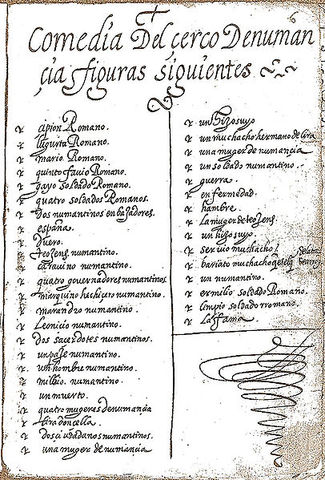 6
Comedia Del çerco Denuman
çia figuras siguientes
cipion Romano.
Iugurta Romano.
mario Romano.
quinto favio Romano.
gayo soldado Romano.
quatro soldados Romanos.
Dos numantinos enbaxadores.
españa.
Duero.
teogens. numantino.
caravino numantino.
quatro governadores numantinos
marquino hechicero numantino.
marandro numantino.
Leonicio numantino.
Dos sacerdotes numantinos.
un paje numantino.
un hombre numantino
milbio. numantino.
un muerto.
quatro mugeres denumancia
lira donçella.
dos ciudadanos numantinos.
una muger de numancia
un hijo suyo
un muchacho hermano de lira
una muger de numancia
un soldado numantino.
guerra.
enfermedad.
hambre.
La muger de teogens.
un hijo suyo.
servio muchacho
bariato muchacho
un numantino.
ermilio soldado Romano.
limpio soldado rromano.
La ffama